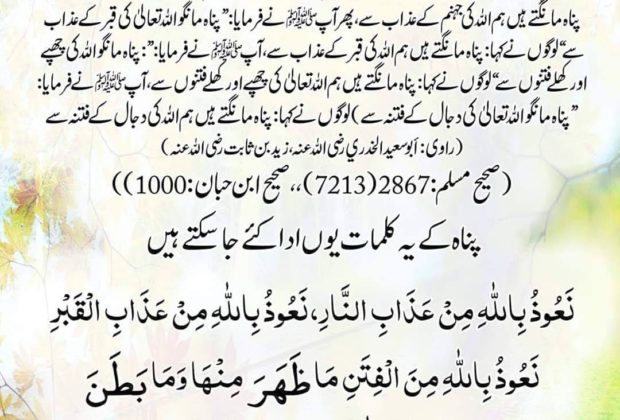 پناہ مانگتے ہیں ہم اللہ کی جہنم کے عذاب سے، پھر آپ ﷺ نے فرمایا: ”پناہ مانگو اللہ تعالیٰ کی قبر کے عذاب
سے“ لوگوں نے کہا: پناہ مانگتے ہیں ہم اللہ کی قبر کے عذاب سے، آپ ﷺ نے فرمایا: ”: پناہ مانگو اللہ کی چھپے
اور کھلے فتنوں سے“ لوگوں نے کہا: پناہ مانگتے ہیں ہم اللہ تعالیٰ کی چھپے اور کھلے فتنوں سے، آپ ﷺ نے فرمایا:
”پناہ مانگو اللہ تعالیٰ کی دجال کے فتنہ سے) لوگوں نے کہا: پناہ مانگتے ہیں ہم اللہ کی دجال کے فتنہ سے
(راوی: أبو سعيد الخدري رضی اللہ عنہ، زید بن ثابت رضی اللہ عنہ)
(صحیح مسلم: 2867(7213)،، صحیح ابن حبان: 1000))
پناہ کے یہ کلمات یوں ادا کئے جا سکتے ہیں
نَعُوذُ بِاللّٰهِ مِنْ عَذَابِ النَّارِ، نَعُوذُ بِاللّٰهِ مِنْ عَذَابِ الْقَبْرِ
نَعُوذُ بِاللّٰهِ مِنَ الْفِتَنِ مَا ظَهَرَ مِنْهَا وَمَا بَطَنَ